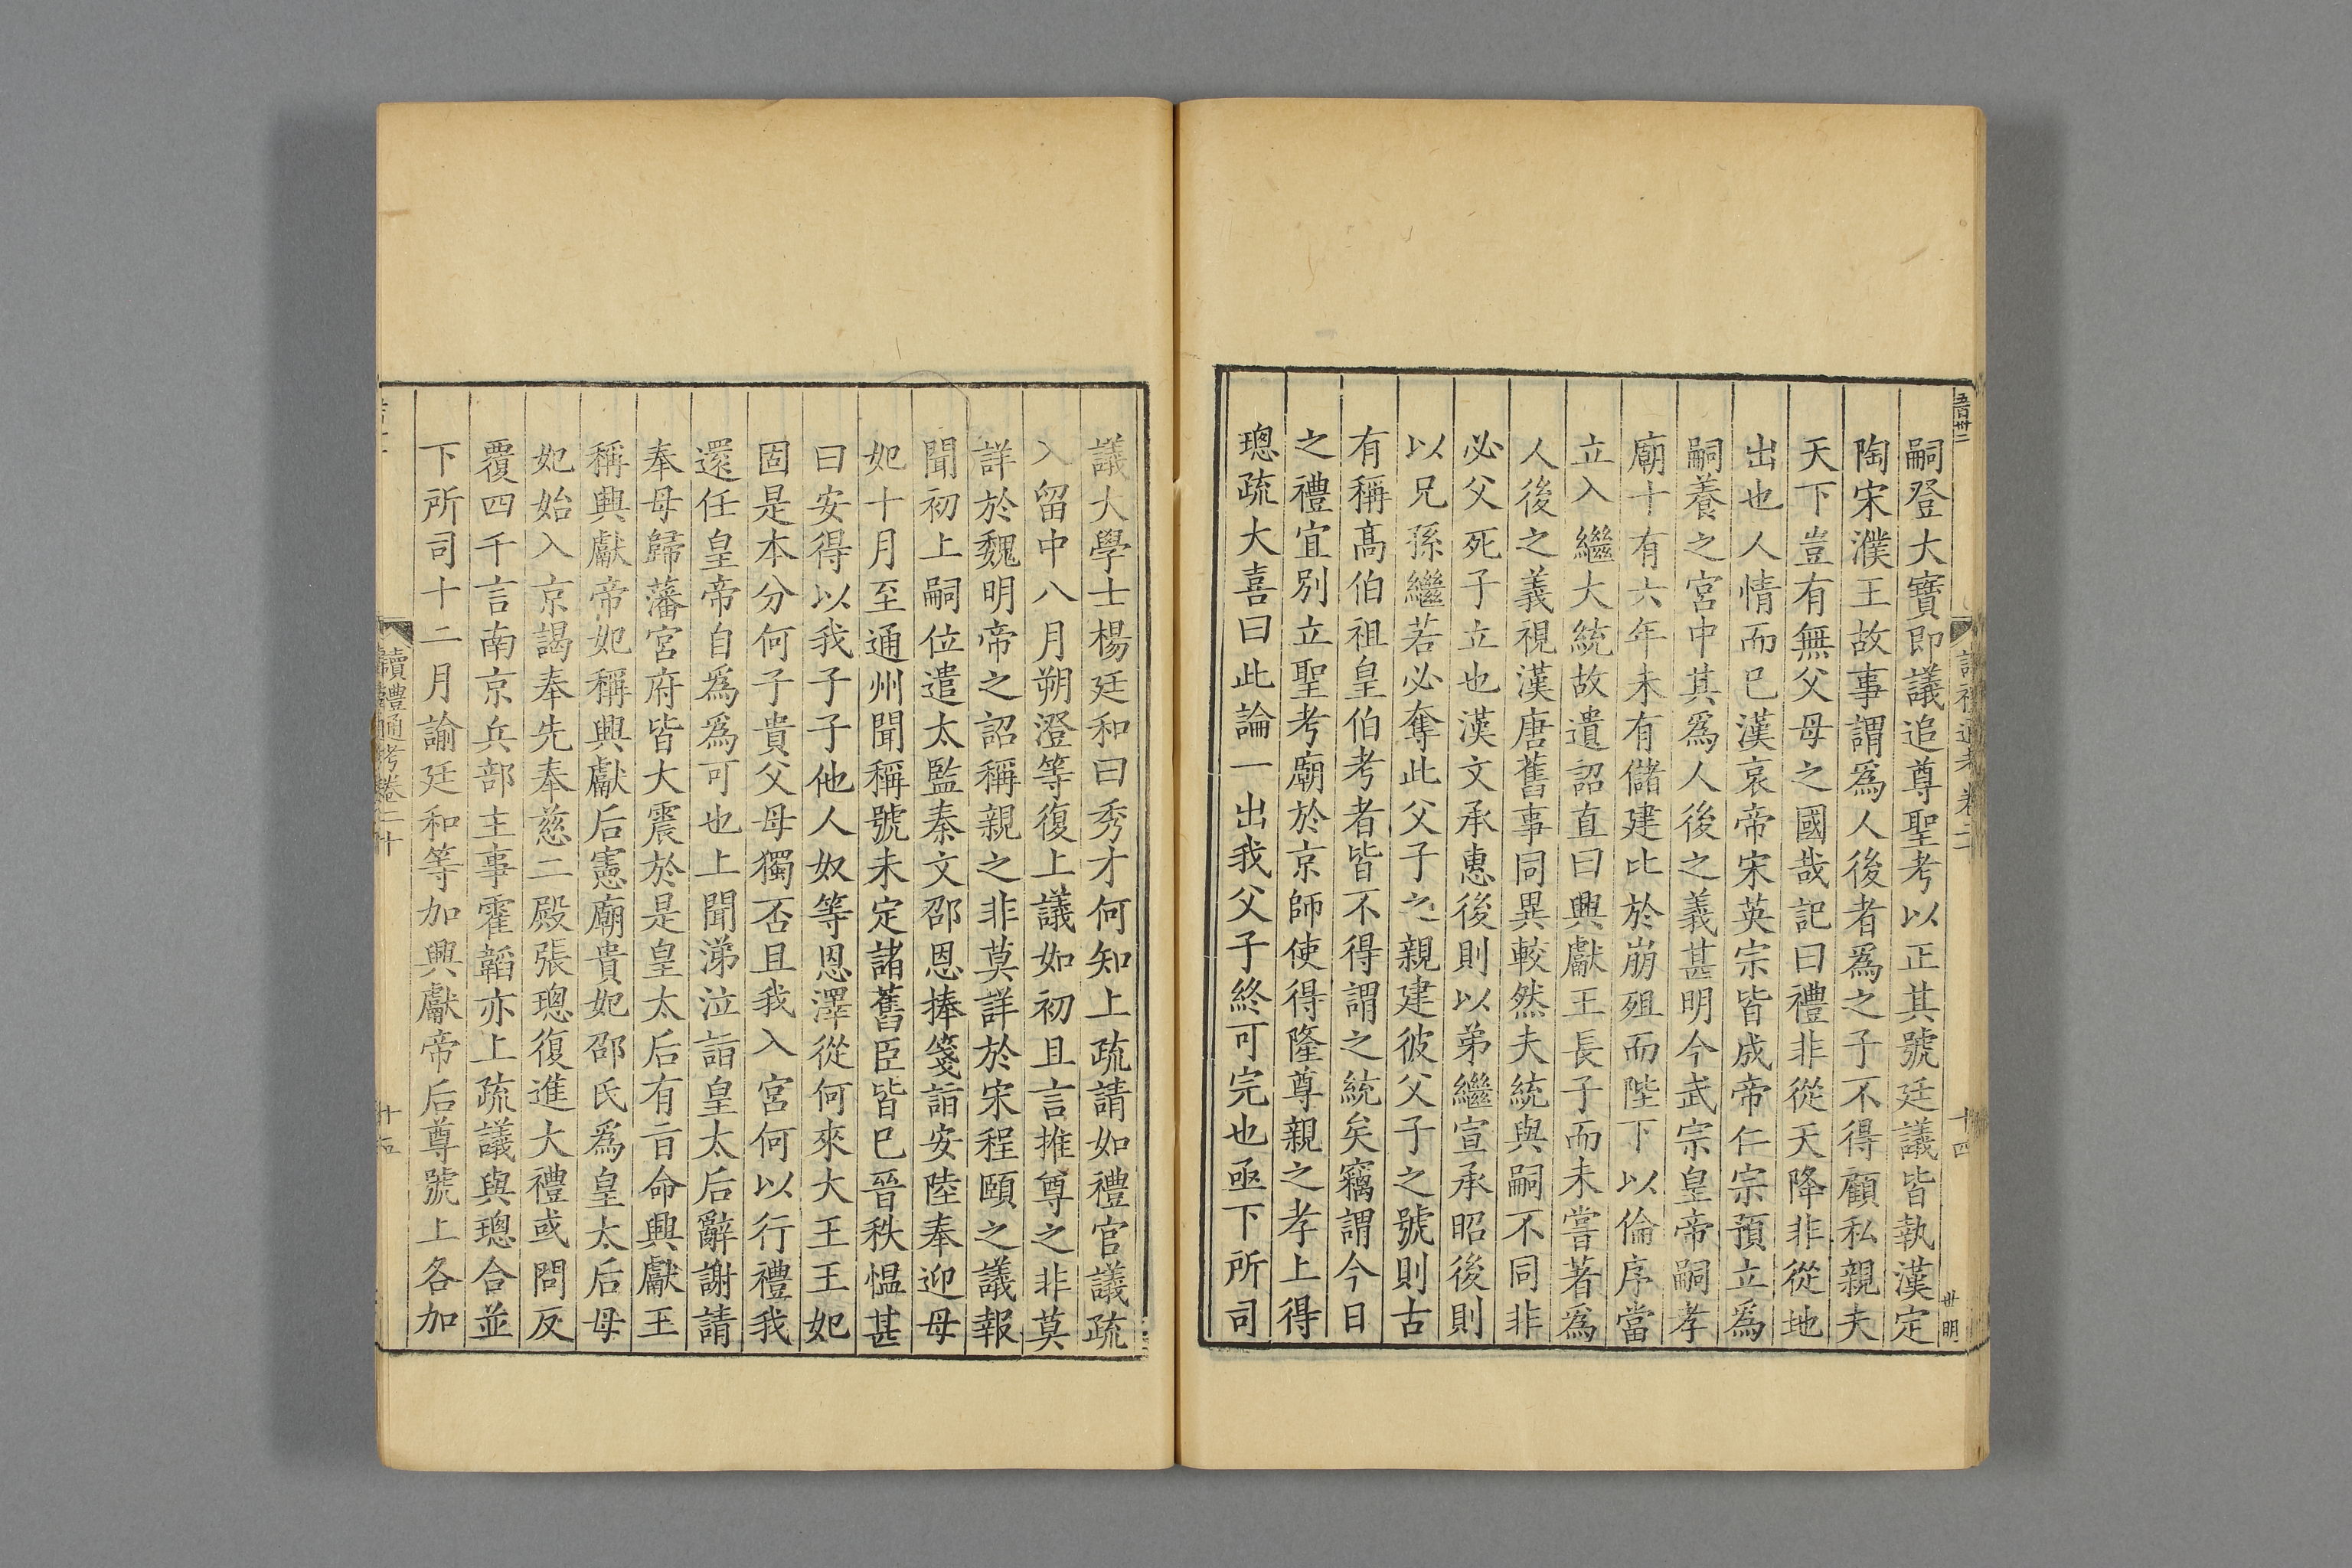 嗣登大寶即議追尊聖考以正其號廷議皆執漢定
陶宋濮王故事謂爲人後者爲之子不得顧私親夫
天下豈有無父母之國哉記曰禮非從天降非從地
出也人情而已漢哀帝宋英宗皆成帝仁宗預立爲
嗣養之宮中其爲人後之義甚明今武宗皇帝嗣孝
廟十有六年未有儲建比於崩殂而陛下以倫序當
立入繼大統故遺詔直曰興獻王長子而未嘗著爲
人後之義視漢唐舊事同異較然夫統與嗣不同非
必父死子立也漢文承惠後則以弟繼宣承昭後則
以兄孫繼若必奪此父子之親建彼父子之號則古
有稱高伯祖皇伯考者皆不得謂之統矣竊謂今日
之禮宜別立聖考廟於京師使得隆尊親之孝上得
璁疏大喜曰此論一出我父子終可完也亟下所司
議大學士楊廷和曰秀才何知上疏請如禮官議疏
入留中八月朔澄等復上議如初且言推尊之非莫
詳於魏明帝之詔稱親之非莫詳於宋程頤之議報
聞初上嗣位遣太監秦文邵恩捧箋詣安陸奉迎母
妃十月至通州聞稱號未定諸舊臣皆已晉秩慍甚
曰安得以我子子他人奴等恩澤從何來大王王妃
固是本分何子貴父母獨否且我入宮何以行禮我
還任皇帝自爲爲可也上聞涕泣詣皇太后辭謝請
奉母歸藩宮府皆大震於是皇太后有旨命興獻王
稱興獻帝妃稱興獻后憲廟貴妃邵氏爲皇太后母
妃始入京謁奉先奉慈二殿張璁復進大禮或問反
覆四千言南京兵部主事霍韜亦上疏議與璁合並
下所司十二月諭廷和等加興獻帝后尊號上各加
讀禮通考卷二十
十五
十四